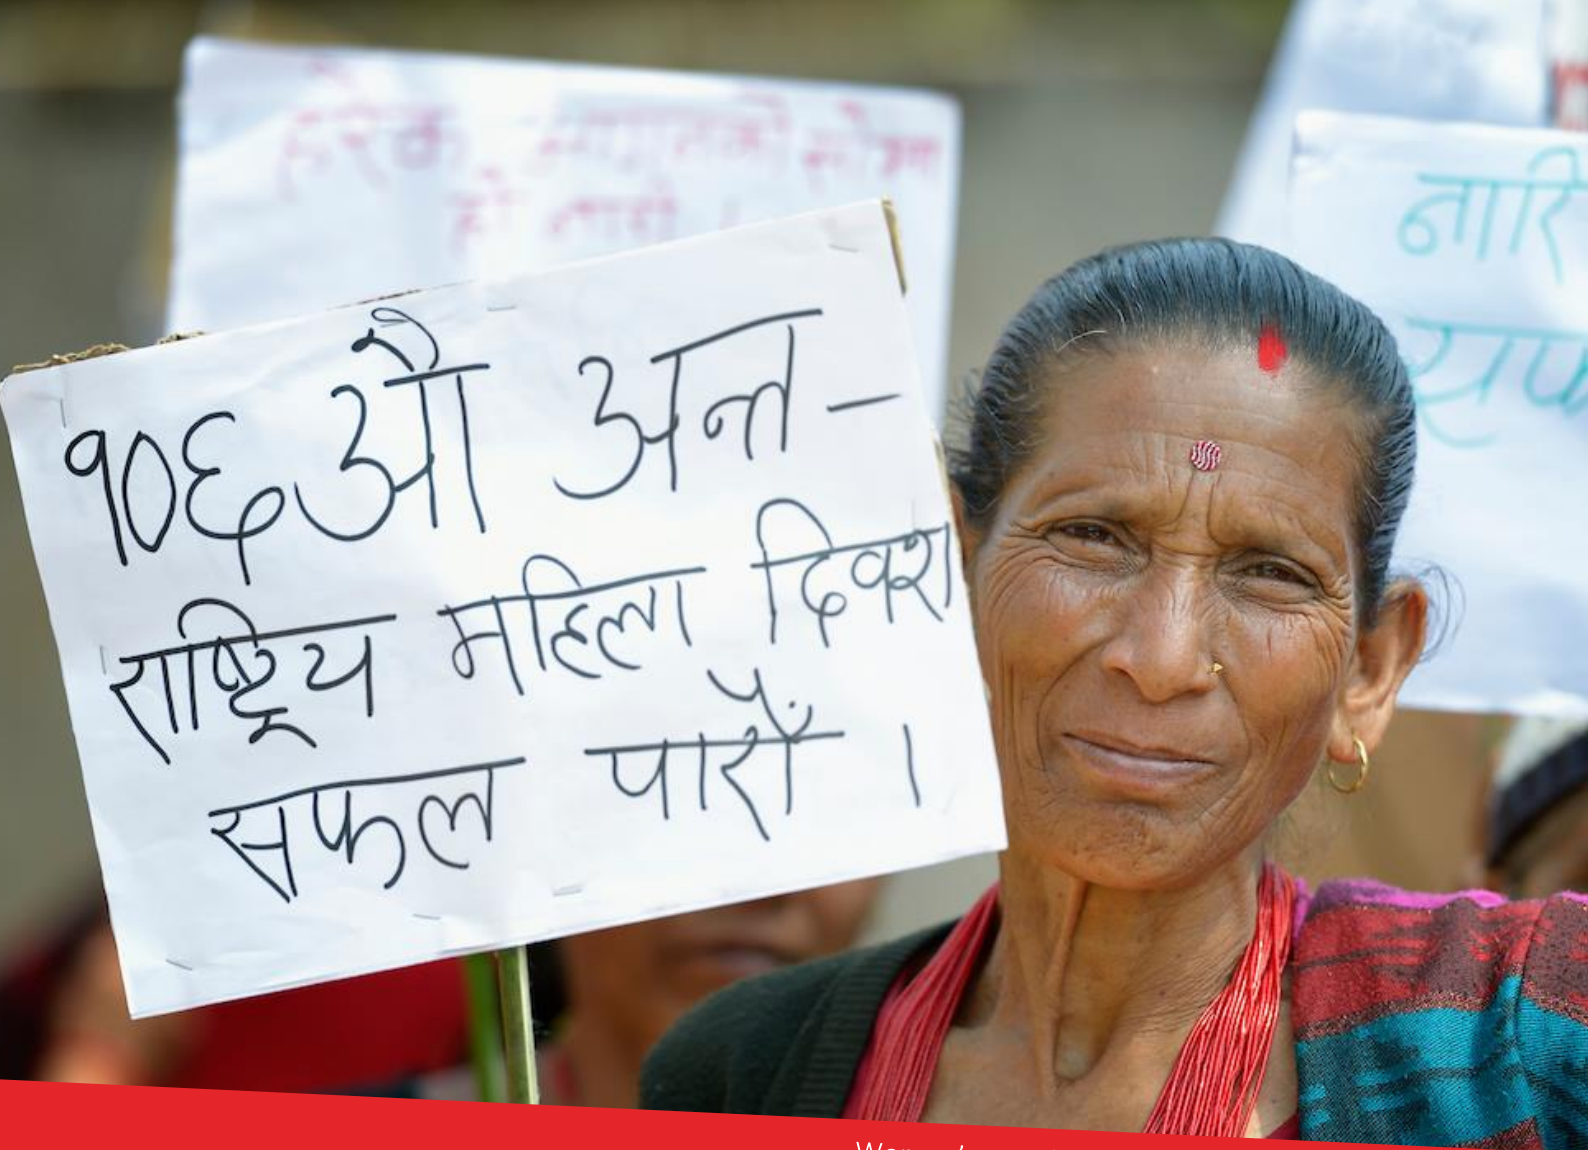 हरेक
हो नारी ।
१०६औ अन्त-
राष्ट्रिय महिला दिवश
सफल पारौँ ।
नारि